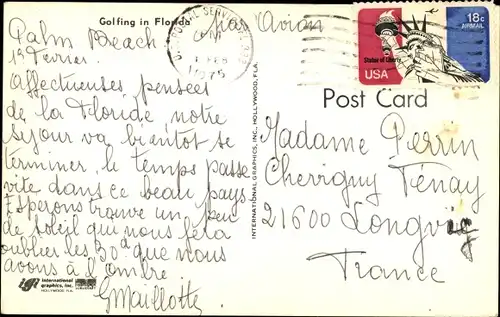 Golfing in Florida
Par Avion
Palm Beach
1er Fevrier
affectueuses pensées
de la Floride notre
séjour va bientot se
terminer, le temps passe
vite dans ce beau pays
Esperons trouve un peu
de soleil qui nous fera
oublier les 30d que nous
avons à l'ombre
GMaillotte
U.S. POSTAL SERVICE
PM
1 FEB
1975
18c
AIRMAIL
Statue of Liberty
USA
Post Card
Madame Perrin
Chevigny Fénay
21600 Longvic
France
INTERNATIONAL GRAPHICS, INC., HOLLYWOOD, FLA.
international
graphics, inc.
HOLLYWOOD FLA.